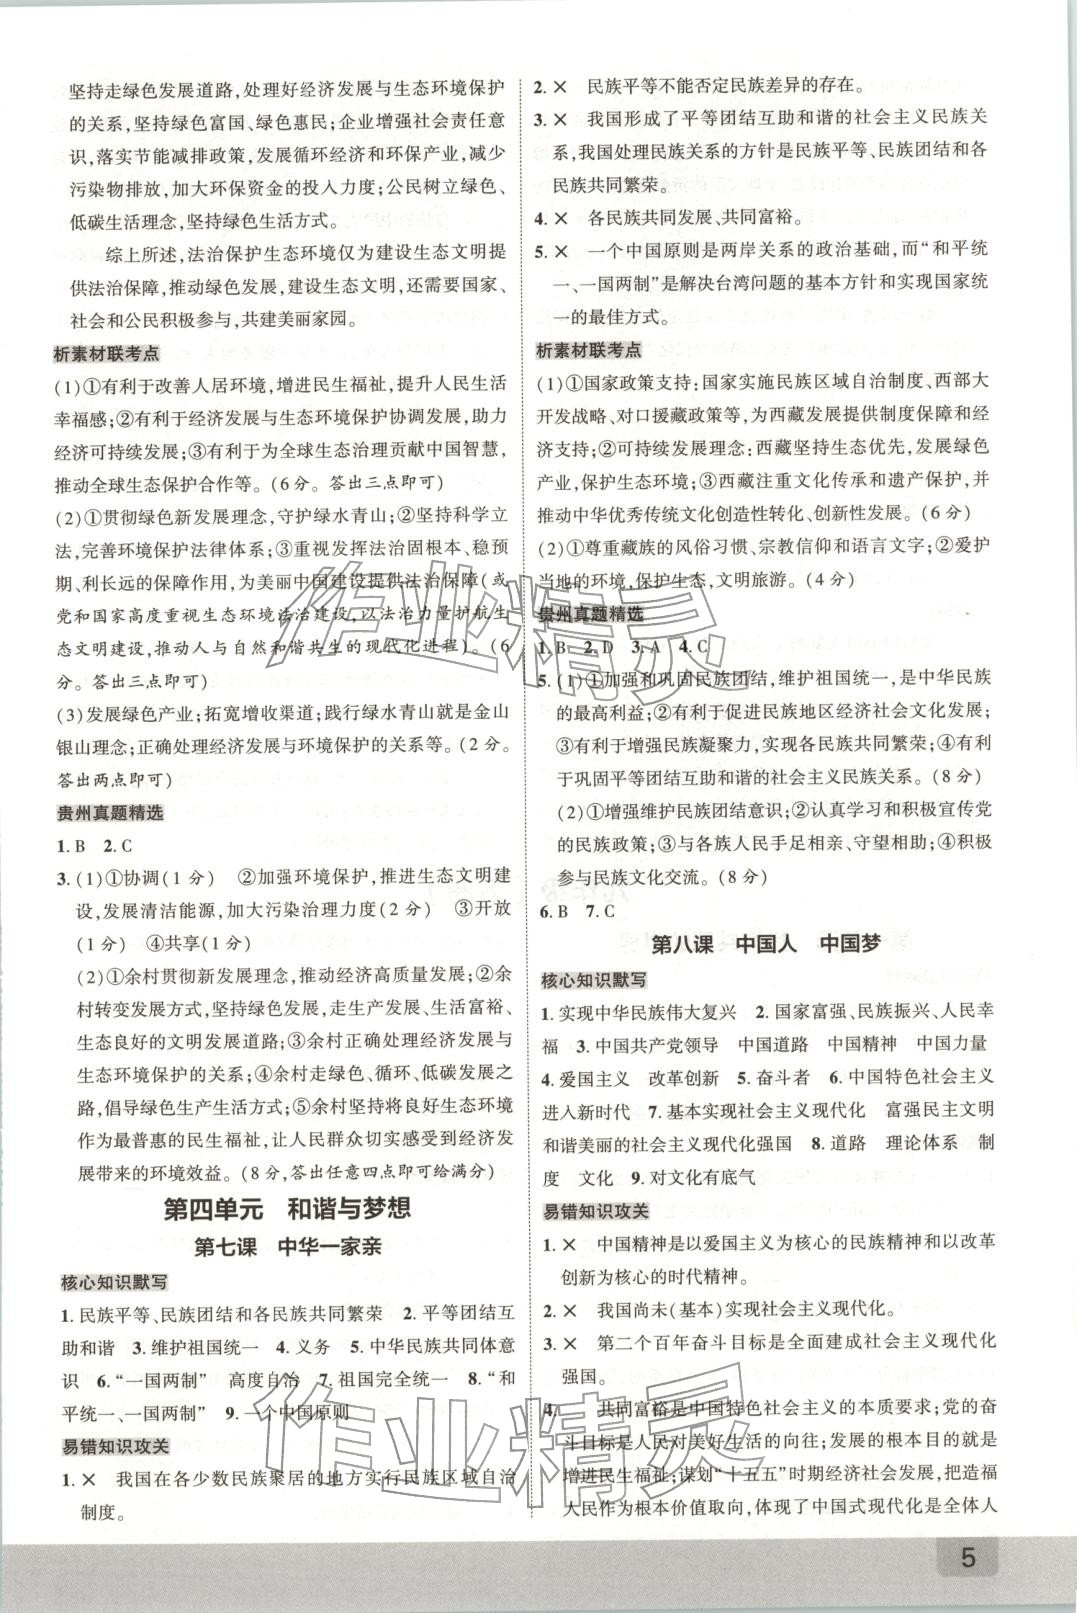 坚持走绿色发展道路,处理好经济发展与生态环境保护
的关系,坚持绿色富国、绿色惠民;企业增强社会责任意
识,落实节能减排政策,发展循环经济和环保产业,减少
污染物排放,加大环保资金的投入力度;公民树立绿色、
低碳生活理念,坚持绿色生活方式。
综上所述,法治保护生态环境仅为建设生态文明提
供法治保障,推动绿色发展,建设生态文明,还需要国家、
社会和公民积极参与,共建美丽家园。
析素材联考点
(1)①有利于改善人居环境,增进民生福祉,提升人民生活
幸福感;②有利于经济发展与生态环境保护协调发展,助力
经济可持续发展;③有利于为全球生态治理贡献中国智慧,
推动全球生态保护合作等。(6分。答出三点即可)
(2)①贯彻绿色新发展理念,守护绿水青山;②坚持科学立
法,完善环境保护法律体系;③重视发挥法治固根本、稳预
期、利长远的保障作用,为美丽中国建设提供法治保障(或
党和国家高度重视生态环境法治建设,以法治力量护航生
态文明建设,推动人与自然和谐共生的现代化进程)。(6
分。答出三点即可)
(3)发展绿色产业;拓宽增收渠道;践行绿水青山就是金山
银山理念;正确处理经济发展与环境保护的关系等。(2分。
答出两点即可)
贵州真题精选
1. B 2. C
3. (1)①协调(1分) ②加强环境保护,推进生态文明建
设,发展清洁能源,加大污染治理力度(2分) ③开放
(1分) ④共享(1分)
(2)①余村贯彻新发展理念,推动经济高质量发展;②余
村转变发展方式,坚持绿色发展,走生产发展、生活富裕、
生态良好的文明发展道路;③余村正确处理经济发展与
生态环境保护的关系;④余村走绿色、循环、低碳发展之
路,倡导绿色生产生活方式;⑤余村坚持将良好生态环境
作为最普惠的民生福祉,让人民群众切实感受到经济发
展带来的环境效益。(8分,答出任意四点即可给满分)
第四单元 和谐与梦想
第七课 中华一家亲
核心知识默写
1. 民族平等、民族团结和各民族共同繁荣 2. 平等团结互
助和谐 3. 维护祖国统一 4. 义务 5. 中华民族共同体意
识 6. “一国两制” 高度自治 7. 祖国完全统一 8. “和
平统一、一国两制” 9. 一个中国原则
易错知识攻关
1. × 我国在各少数民族聚居的地方实行民族区域自治
制度。
2. × 民族平等不能否定民族差异的存在。
3. × 我国形成了平等团结互助和谐的社会主义民族关
系,我国处理民族关系的方针是民族平等、民族团结和各
民族共同繁荣。
4. × 各民族共同发展、共同富裕。
5. × 一个中国原则是两岸关系的政治基础,而“和平统
一、一国两制”是解决台湾问题的基本方针和实现国家统
一的最佳方式。
析素材联考点
(1)①国家政策支持:国家实施民族区域自治制度、西部大
开发战略、对口援藏政策等,为西藏发展提供制度保障和经
济支持;②可持续发展:西藏坚持生态优先,发展绿色产业,
保护生态环境;③西藏注重文化传承和遗产保护,
推动中华优秀传统文化创造性转化、创新性发展。(6分)
(2)①尊重藏族的风俗习惯、宗教信仰和语言文字;②爱护
当地的环境,保护生态,文明旅游。(4分)
贵州真题精选
1. B 2. D 3. A 4. C
5. (1)①加强和巩固民族团结,维护祖国统一,是中华民族
的最高利益;②有利于促进民族地区经济社会文化发展;
③有利于增强民族凝聚力,实现各民族共同繁荣;④有利
于巩固平等团结互助和谐的社会主义民族关系。(8分)
(2)①增强维护民族团结意识;②认真学习和积极宣传党
的民族政策;③与各族人民手足相亲、守望相助;④积极
参与民族文化交流。(8分)
6. B 7. C
第八课 中国人 中国梦
核心知识默写
1. 实现中华民族伟大复兴 2. 国家富强、民族振兴、人民幸
福 3. 中国共产党领导 中国道路 中国精神 中国力量
4. 爱国主义 改革创新 5. 奋斗者 6. 中国特色社会主义
进入新时代 7. 基本实现社会主义现代化 富强民主文明
和谐美丽的社会主义现代化强国 8. 道路 理论体系 制
度 文化 9. 对文化有底气
易错知识攻关
1. × 中国精神是以爱国主义为核心的民族精神和以改革
创新为核心的时代精神。
2. × 我国尚未(基本)实现社会主义现代化。
3. × 第二个百年奋斗目标是全面建成社会主义现代化
强国。
4. 共同富裕是中国特色社会主义的本质要求;党的奋
斗目标是人民对美好生活的向往;发展的根本目的就是
增进民生福祉;谋划“十五五”时期经济社会发展,把造福
人民作为根本价值取向,体现了中国式现代化是全体人
作业精灵
作业精灵
5